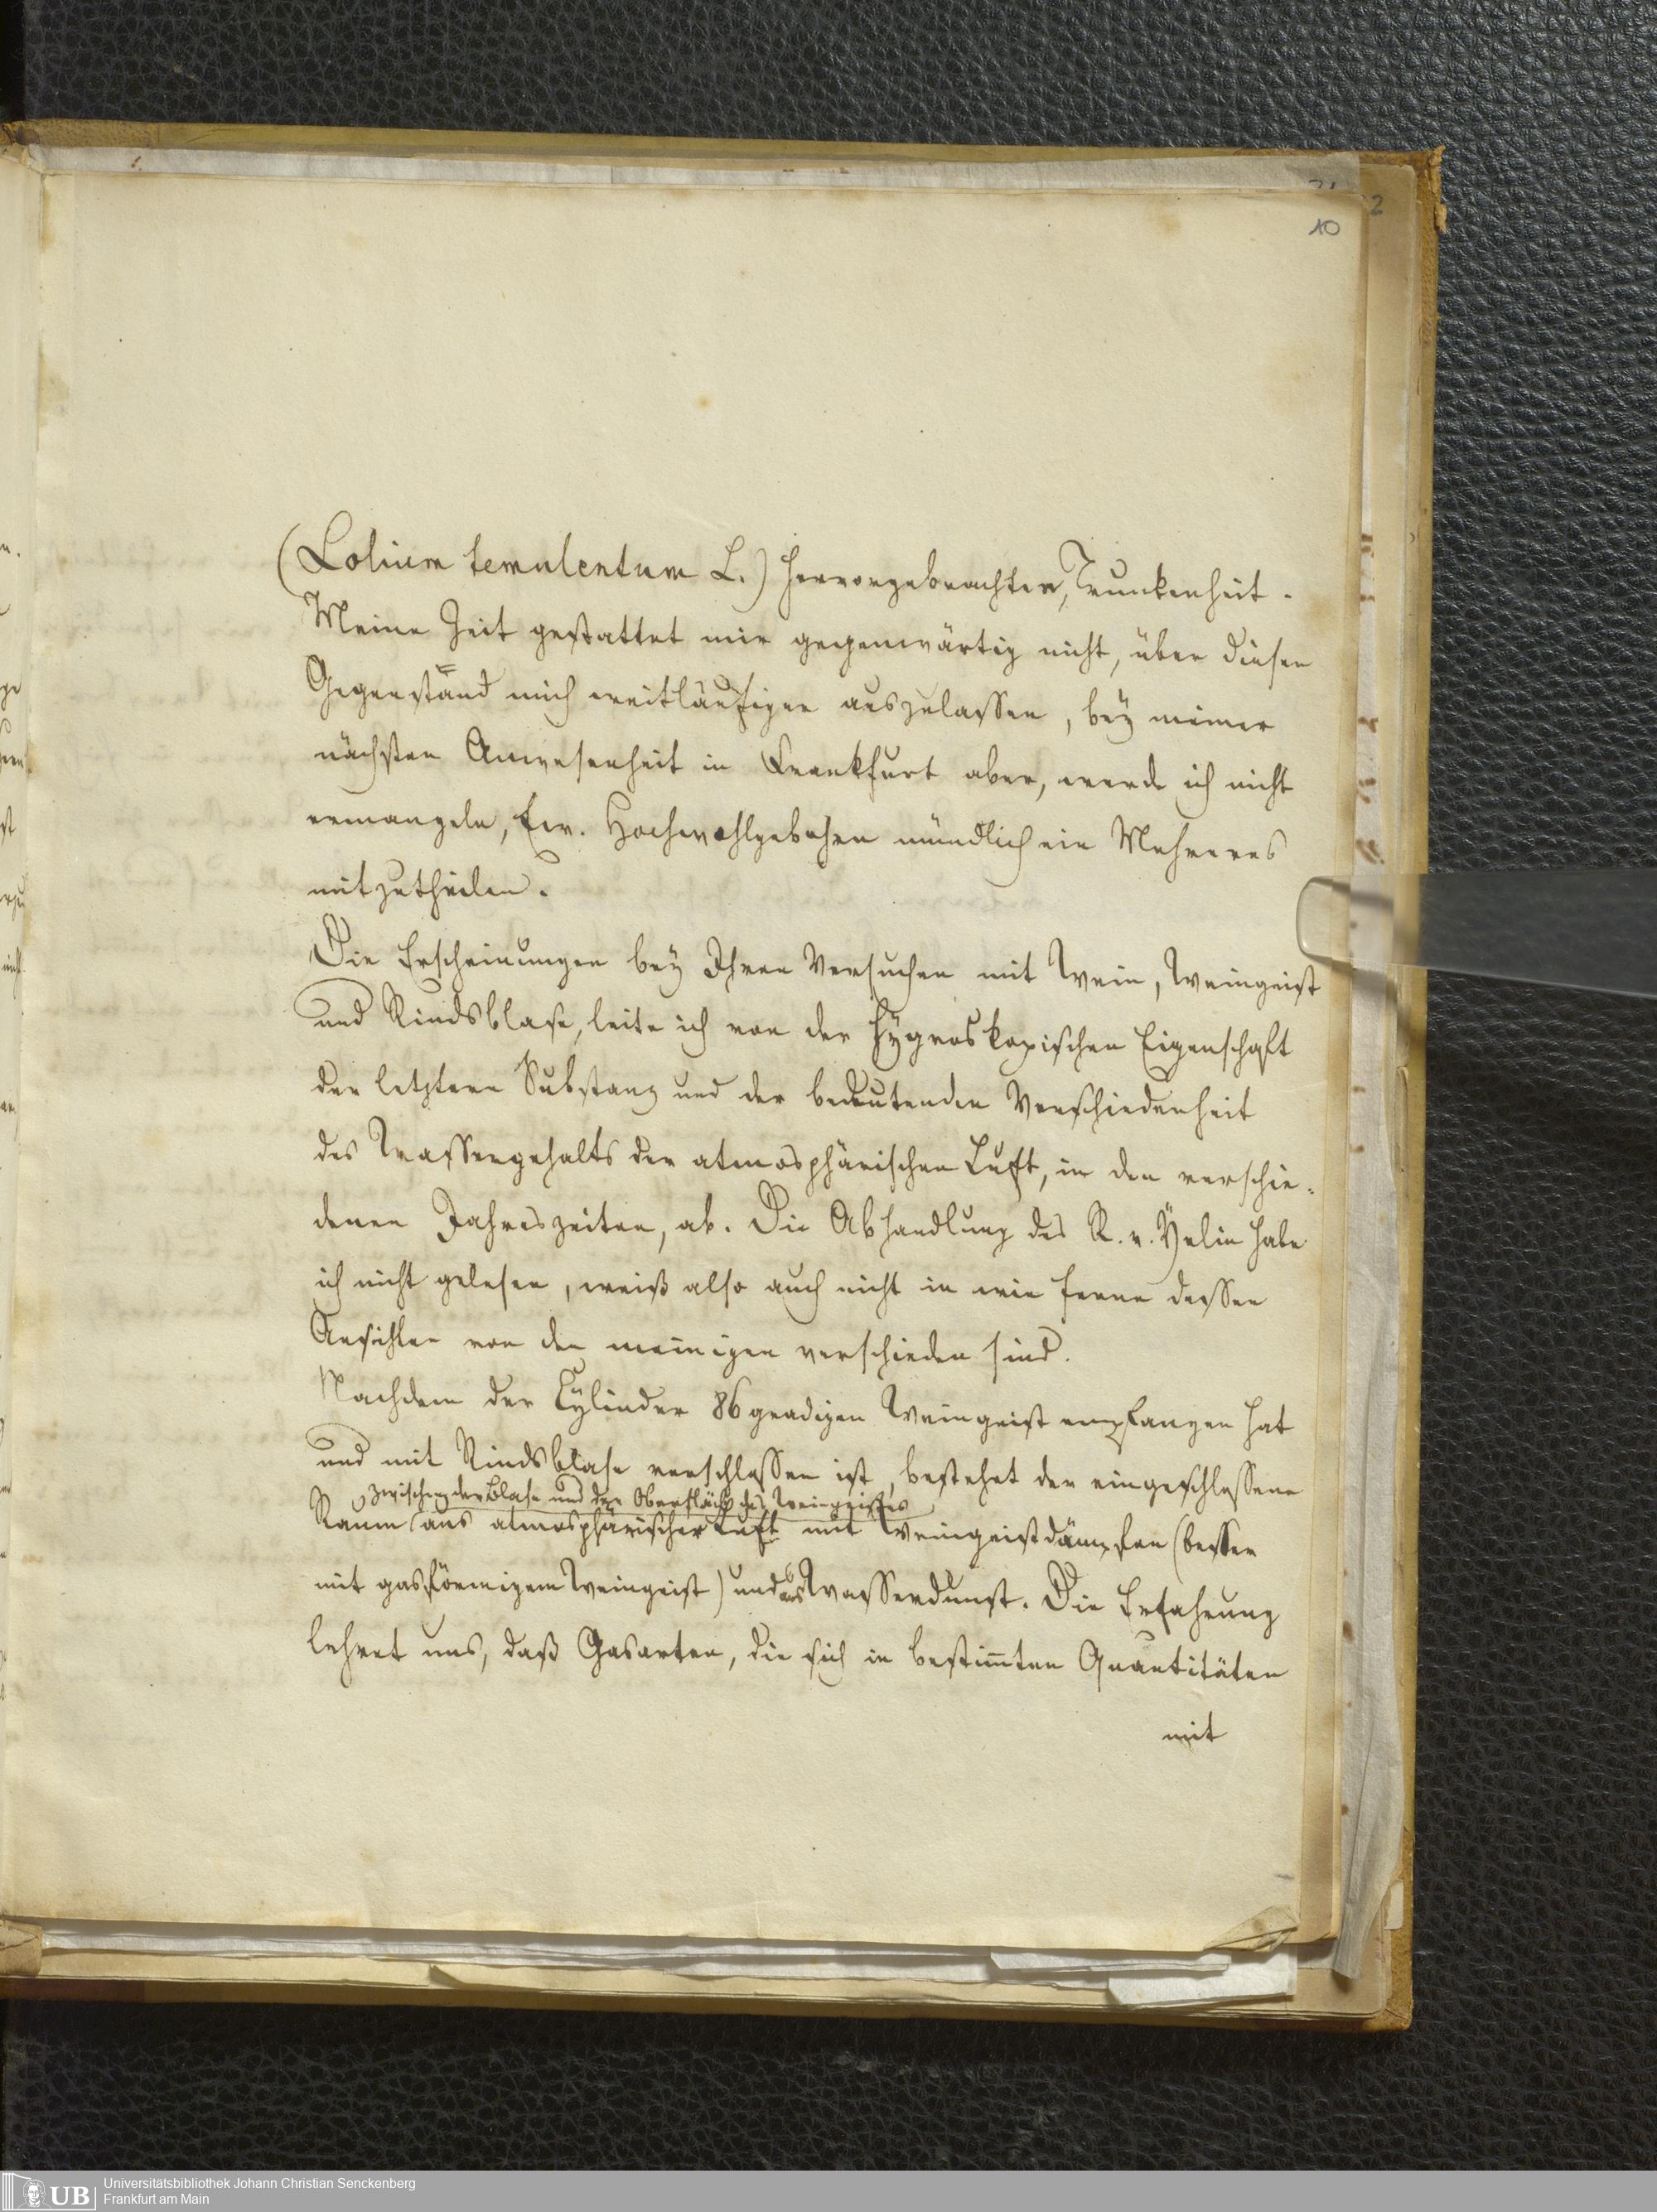 10
(Lolium temulentum L.) hervorgebrachten, Trunkenheit.
Meine Zeit gestattet mir gegenwärtig nicht, über diesen
Gegenstand mich weitläufiger auszulassen, bey meiner
nächsten Anwesenheit in Frankfurt aber, werde ich nicht
ermangeln, Ew. Hochwohlgebohren mündlich ein Mehreres
mitzutheilen.
Die Erscheinungen bey Ihren Versuchen mit Wein, Weingeist
und Rindsblase, leite ich von der hygroskopischen Eigenschaft
der letztern Substanz und der bedeutenden Verschiedenheit
des Wassergehalts der atmosphärischen Luft, in den verschie-
denen Jahreszeiten, ab. Die Abhandlung des R. v. Yelin habe
ich nicht gelesen, weiß also auch nicht in wie ferne dessen
Ansichten von den meinigen verschieden sind.
Nachdem der Cylinder 86 gradigen Weingeist empfangen hat
und mit Rindsblase verschlossen ist, bestehet der eingeschlossene
zwischen der Blase und der Oberfläche des Weingeistes
Raum aus atmosphärischer Luft mit Weingeistdämpfen (besser
mit gasförmigem Weingeist) und aus Wasserdunst. Die Erfahrung
lehret uns, daß Gasarten, die sich in bestimten Quantitäten
mit
UB Universitätsbibliothek Johann Christian Senckenberg
Frankfurt am Main